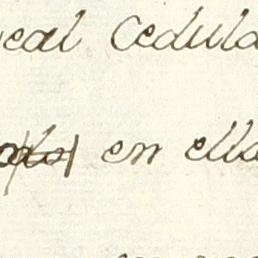 eal Cedula
en ella